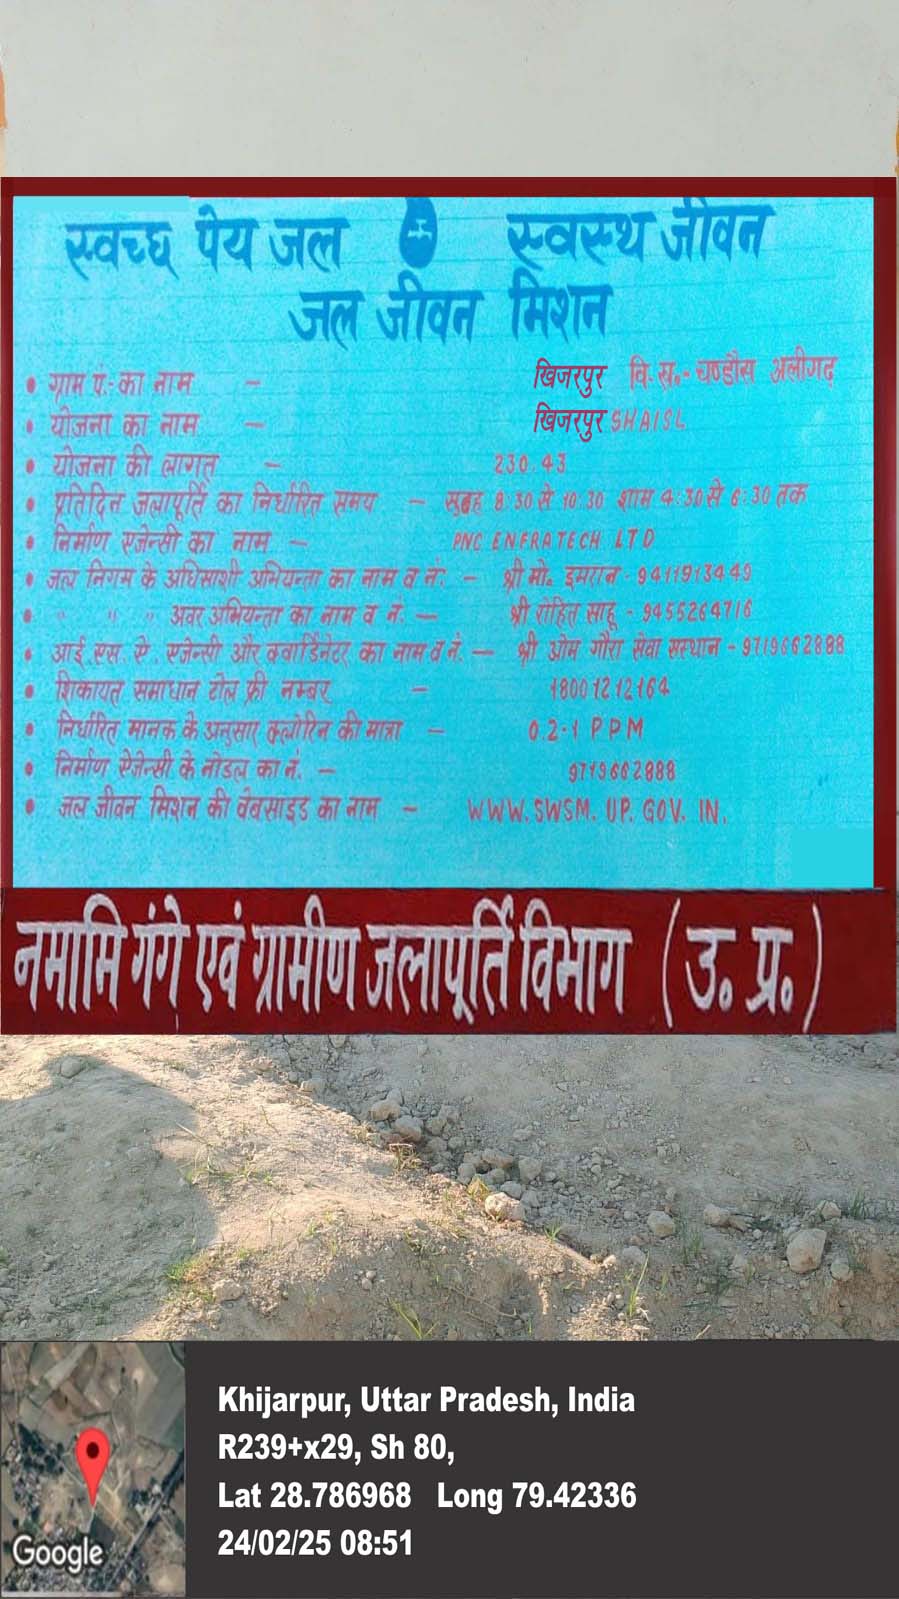 स्वच्छ पेय जल स्वस्थ जीवन
जल जीवन मिशन
• ग्राम पं:- का नाम – खिजरपुर वि. स.- चण्डौस अलीगढ़
• योजना का नाम – खिजरपुर SHAISL
• योजना की लागत – 230.43
• प्रतिदिन जलापूर्ति का निर्धारित समय – सुबह 8:30 से 10:30 शाम 4:30 से 6:30 तक
• निर्माण एजेन्सी का नाम – PNC ENFRATECH LTD
• जल निगम के अधिसाशी अभियन्ता का नाम व नं: – श्री मो. इमरान - 9411913449
• " " " अवर अभियन्ता का नाम व नं. – श्री रोहित साहू - 9455264716
• आई.एस.ए. एजेन्सी और क्वार्डिनेटर का नाम व नं. – श्री ओम गौरा सेवा सस्थान - 9719662888
• शिकायत समाधान टोल फ्री नम्बर – 18001212164
• निर्धारित मानक के अनुसार क्लोरिन की मात्रा – 0.2-1 PPM
• निर्माण ऐजेन्सी के नोडल का नं. – 9719662888
• जल जीवन मिशन की वेबसाइड का नाम – WWW.SWSM.UP.GOV.IN.
नमामि गंगे एवं ग्रामीण जलापूर्ति विभाग (उ. प्र.)
Khijarpur, Uttar Pradesh, India
R239+x29, Sh 80,
Lat 28.786968 Long 79.42336
24/02/25 08:51
Google